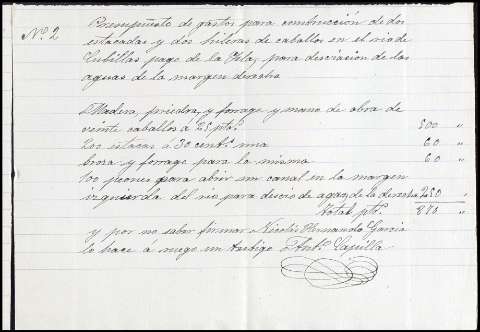 Nº 2
Presupuesto de gastos para construcción de dos
estacadas y dos hileras de caballos en el río de
Cubillas pago de la para desviación de las
aguas de la margen derecha
Madera, piedra, y forrage y mano de obra de
veinte caballos a 25 ptˢ. 500 "
200 estacas á 30 centˢ. una 60 "
broza y forrage para la misma 60 "
100 peones para abrir un canal en la margen
izquierda del río para desvio de aguas de la derecha 250 "
Total ptˢ. 870 "
y por no saber firmar Nicolás Hernando Garcia
lo hace á ruego un testigo Antº. Capilla